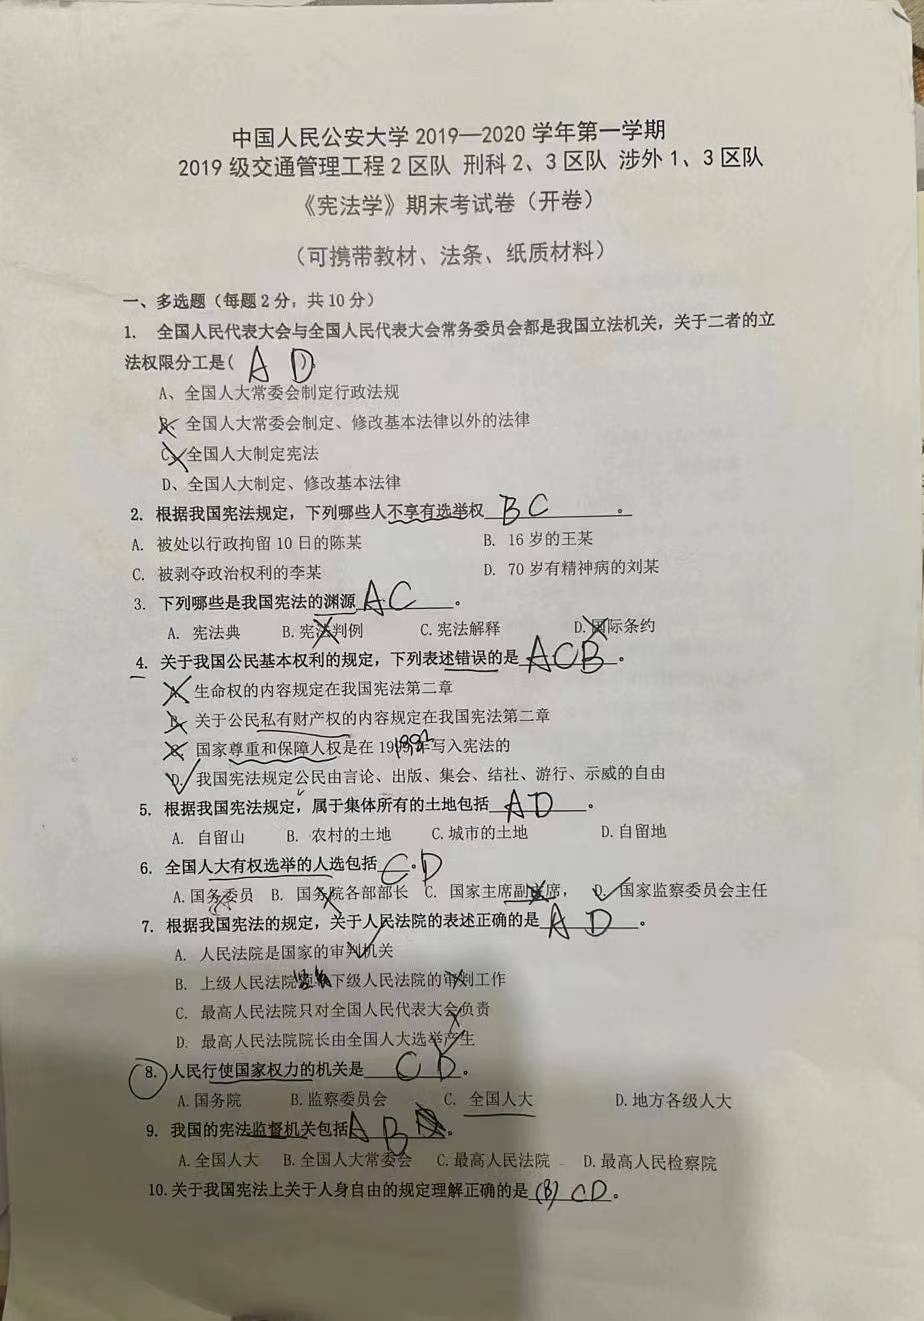 中国人民公安大学 2019—2020 学年第一学期
2019 级交通管理工程 2 区队 刑科 2、3 区队 涉外 1、3 区队
《宪法学》期末考试卷（开卷）
（可携带教材、法条、纸质材料）
一、多选题（每题 2 分，共 10 分）
1. 全国人民代表大会与全国人民代表大会常务委员会都是我国立法机关，关于二者的立
法权限分工是( A D )。
A、全国人大常委会制定行政法规
B、全国人大常委会制定、修改基本法律以外的法律
C、全国人大制定宪法
D、全国人大制定、修改基本法律
2. 根据我国宪法规定，下列哪些人不享有选举权 B C 。
A. 被处以行政拘留 10 日的陈某 B. 16 岁的王某
C. 被剥夺政治权利的李某 D. 70 岁有精神病的刘某
3. 下列哪些是我国宪法的渊源 A C 。
A. 宪法典 B.宪法判例 C.宪法解释 D.国际条约
4. 关于我国公民基本权利的规定，下列表述错误的是 A C B 。
A. 生命权的内容规定在我国宪法第二章
B. 关于公民私有财产权的内容规定在我国宪法第二章
C. 国家尊重和保障人权是在 19 年写入宪法的
D. 我国宪法规定公民由言论、出版、集会、结社、游行、示威的自由
5. 根据我国宪法规定，属于集体所有的土地包括 A D 。
A. 自留山 B. 农村的土地 C.城市的土地 D.自留地
6. 全国人大有权选举的人选包括 C 。D
A.国务委员 B. 国务院各部部长 C. 国家主席副主席， D. 国家监察委员会主任
7. 根据我国宪法的规定，关于人民法院的表述正确的是 A D 。
A. 人民法院是国家的审判机关
B. 上级人民法院 下级人民法院的审判工作
C. 最高人民法院只对全国人民代表大会负责
D. 最高人民法院院长由全国人大选举产生
8. 人民行使国家权力的机关是 C D 。
A.国务院 B.监察委员会 C. 全国人大 D.地方各级人大
9. 我国的宪法监督机关包括 A B 。
A.全国人大 B.全国人大常委会 C.最高人民法院 D.最高人民检察院
10.关于我国宪法上关于人身自由的规定理解正确的是 (B) C D 。